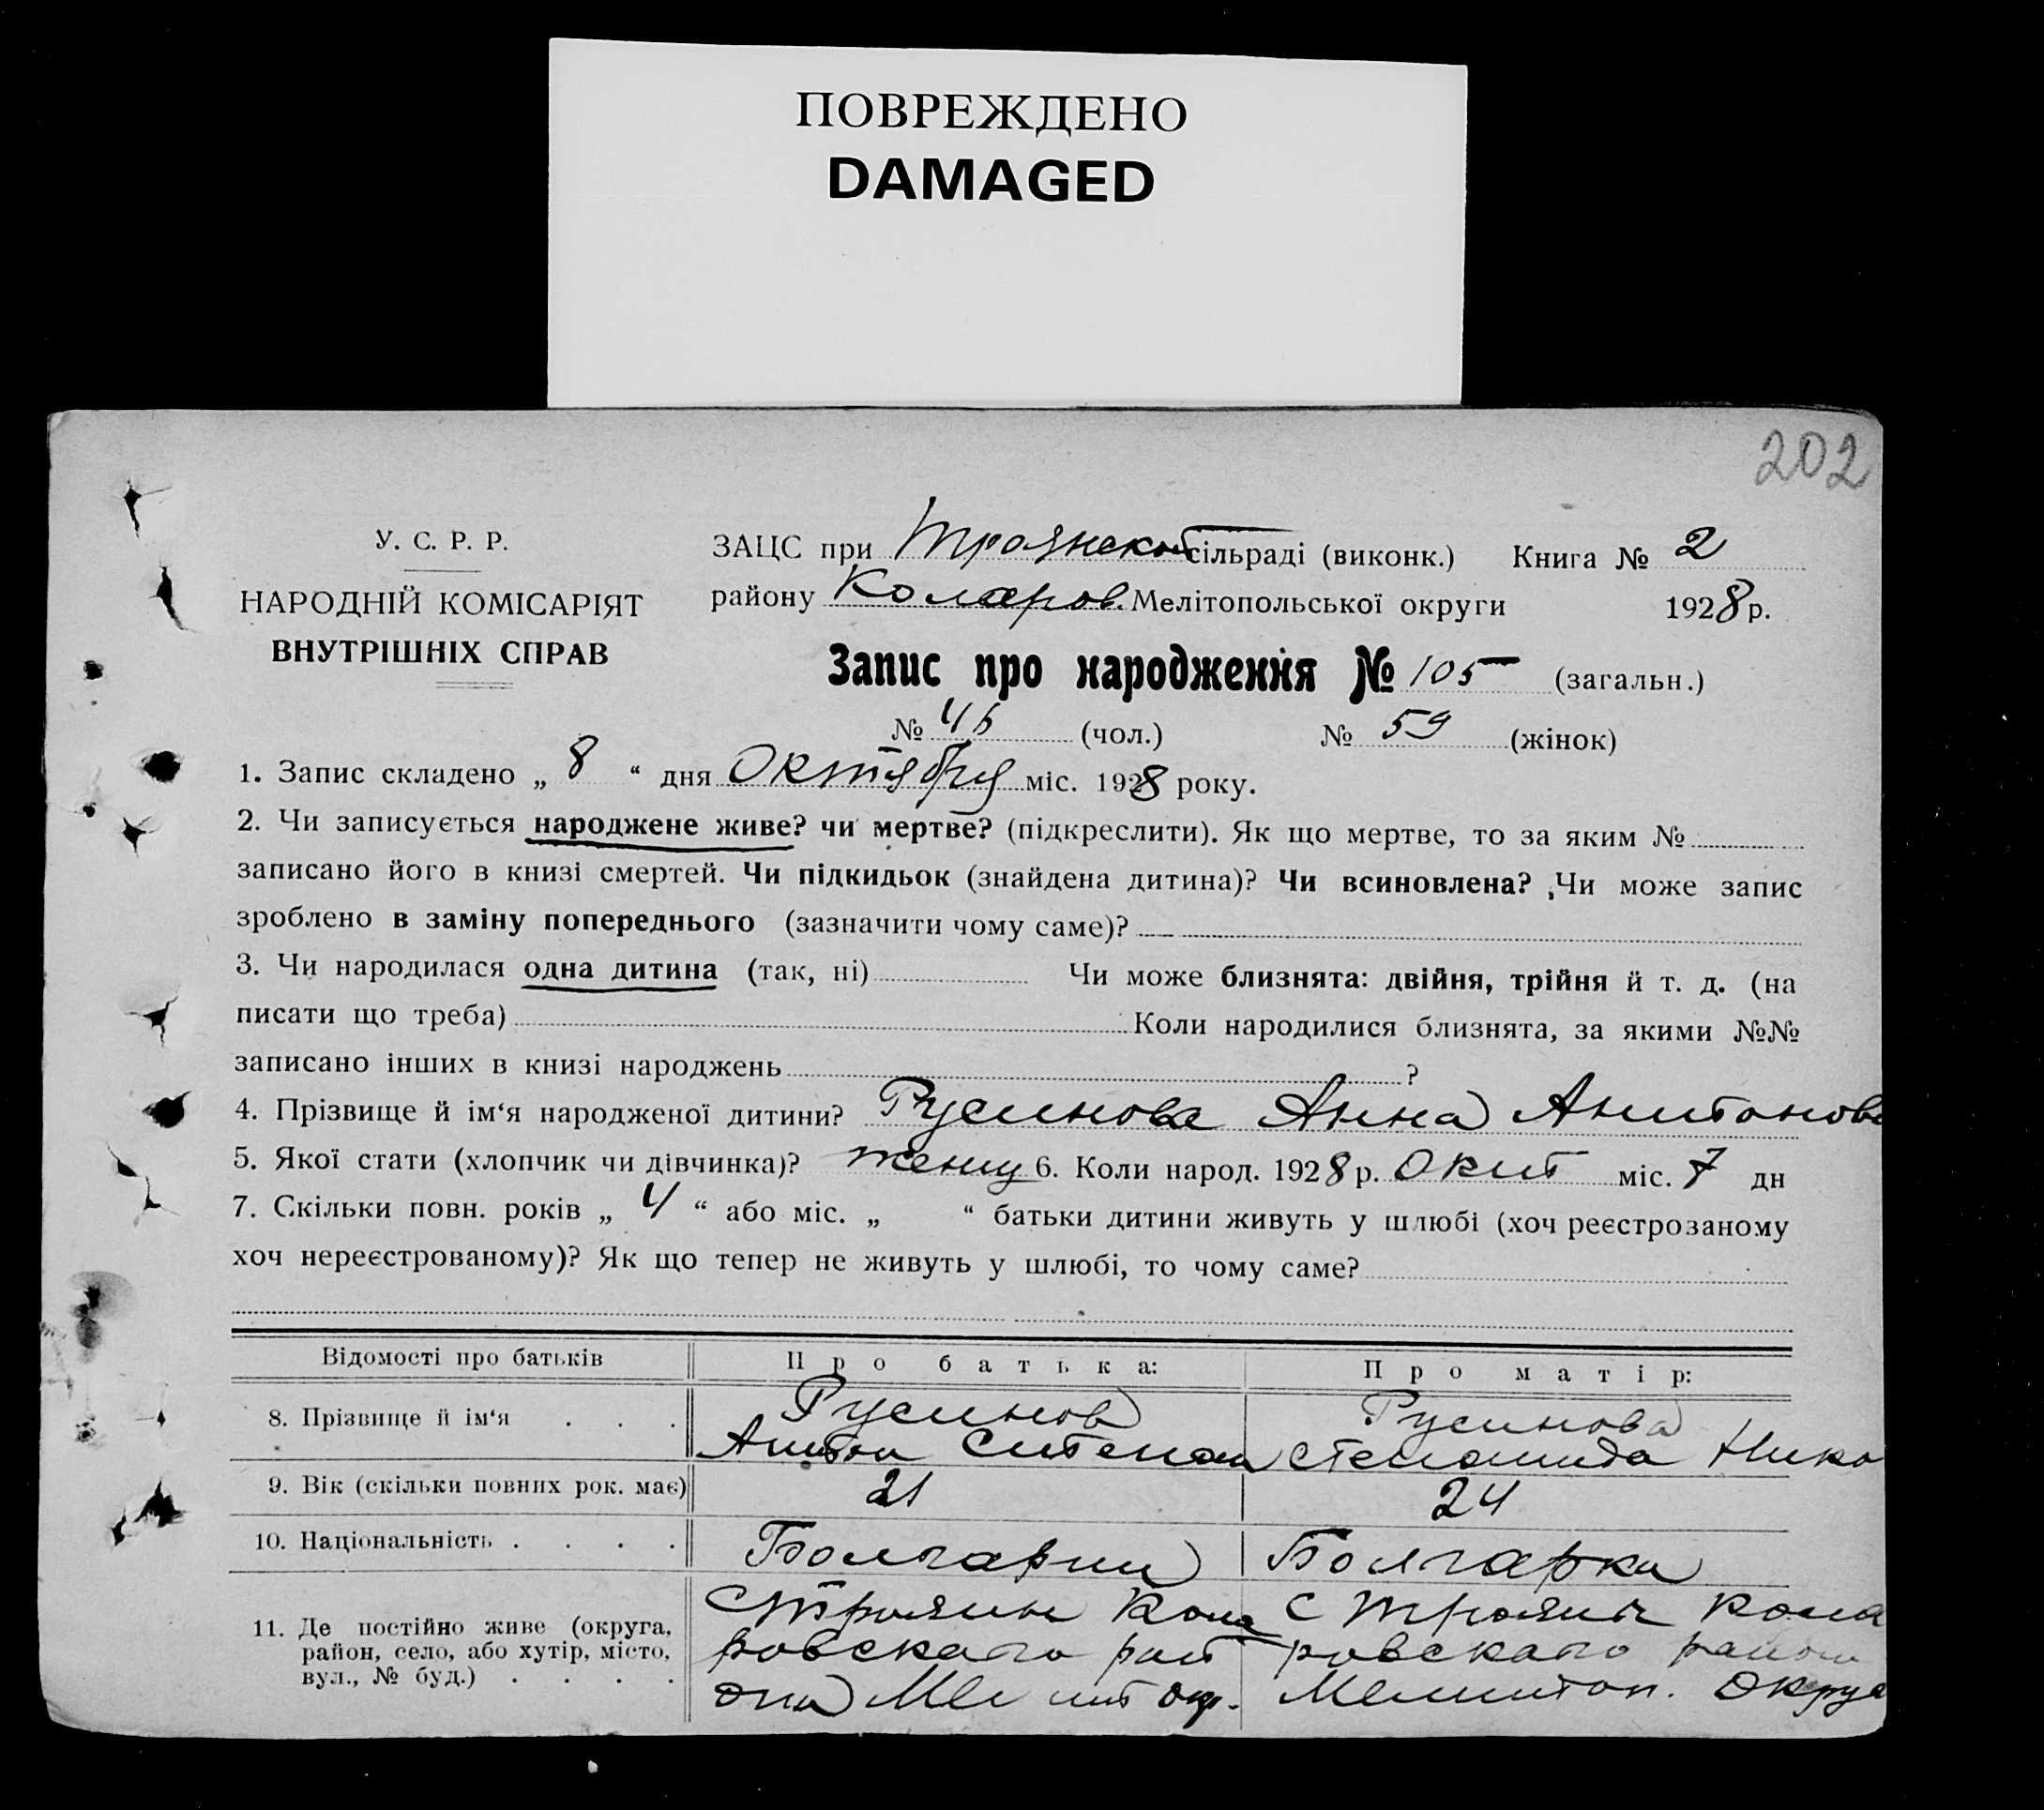 ПОВРЕЖДЕНО
DAMAGED
202
У. С. Р. Р.
НАРОДНІЙ КОМІСАРІЯТ
ВНУТРІШНІХ СПРАВ
ЗАЦС при Троянской сільраді (виконк.) Книга № 2
району Коларов. Мелітопольської округи 1928 р.
Запис про народження № 105 (загальн.)
№ (чол.) № 59 (жінок)
1. Запис складено „ 8 “ дня Октября міс. 1928 року.
2. Чи записується народжене живе? чи мертве? (підкреслити). Як що мертве, то за яким №
записано його в книзі смертей. Чи підкидьок (знайдена дитина)? Чи всиновлена? Чи може запис
зроблено в заміну попереднього (зазначити чому саме)?
3. Чи народилася одна дитина (так, ні) Чи може близнята: двійня, трійня й т. д. (на
писати що треба) Коли народилися близнята, за якими №№
записано інших в книзі народжень ?
4. Прізвище й ім‘я народженої дитини? Русинова Анна Антонов
5. Якої стати (хлопчик чи дівчинка)? 6. Коли народ. 1928 р. Окт міс. 7 дн
7. Скільки повн. років „ 4 “ або міс. „ “ батьки дитини живуть у шлюбі (хоч реєстрозаному
хоч нереєстрованому)? Як що тепер не живуть у шлюбі, то чому саме?
Відомості про батьків Про батька: Про матір:
8. Прізвище й ім‘я . . . Русинов Русинова
Антон Степан Нико
9. Вік (скільки повних рок. має) 21 24
10. Національність . . . . Болгарин Болгарка
11. Де постійно живе (округа, С Троян Кола С Троян Кола
район, село, або хутір, місто, ровского рай ровского район
вул., № буд.) . . . . она Мелит окр. Мелитоп. Окру